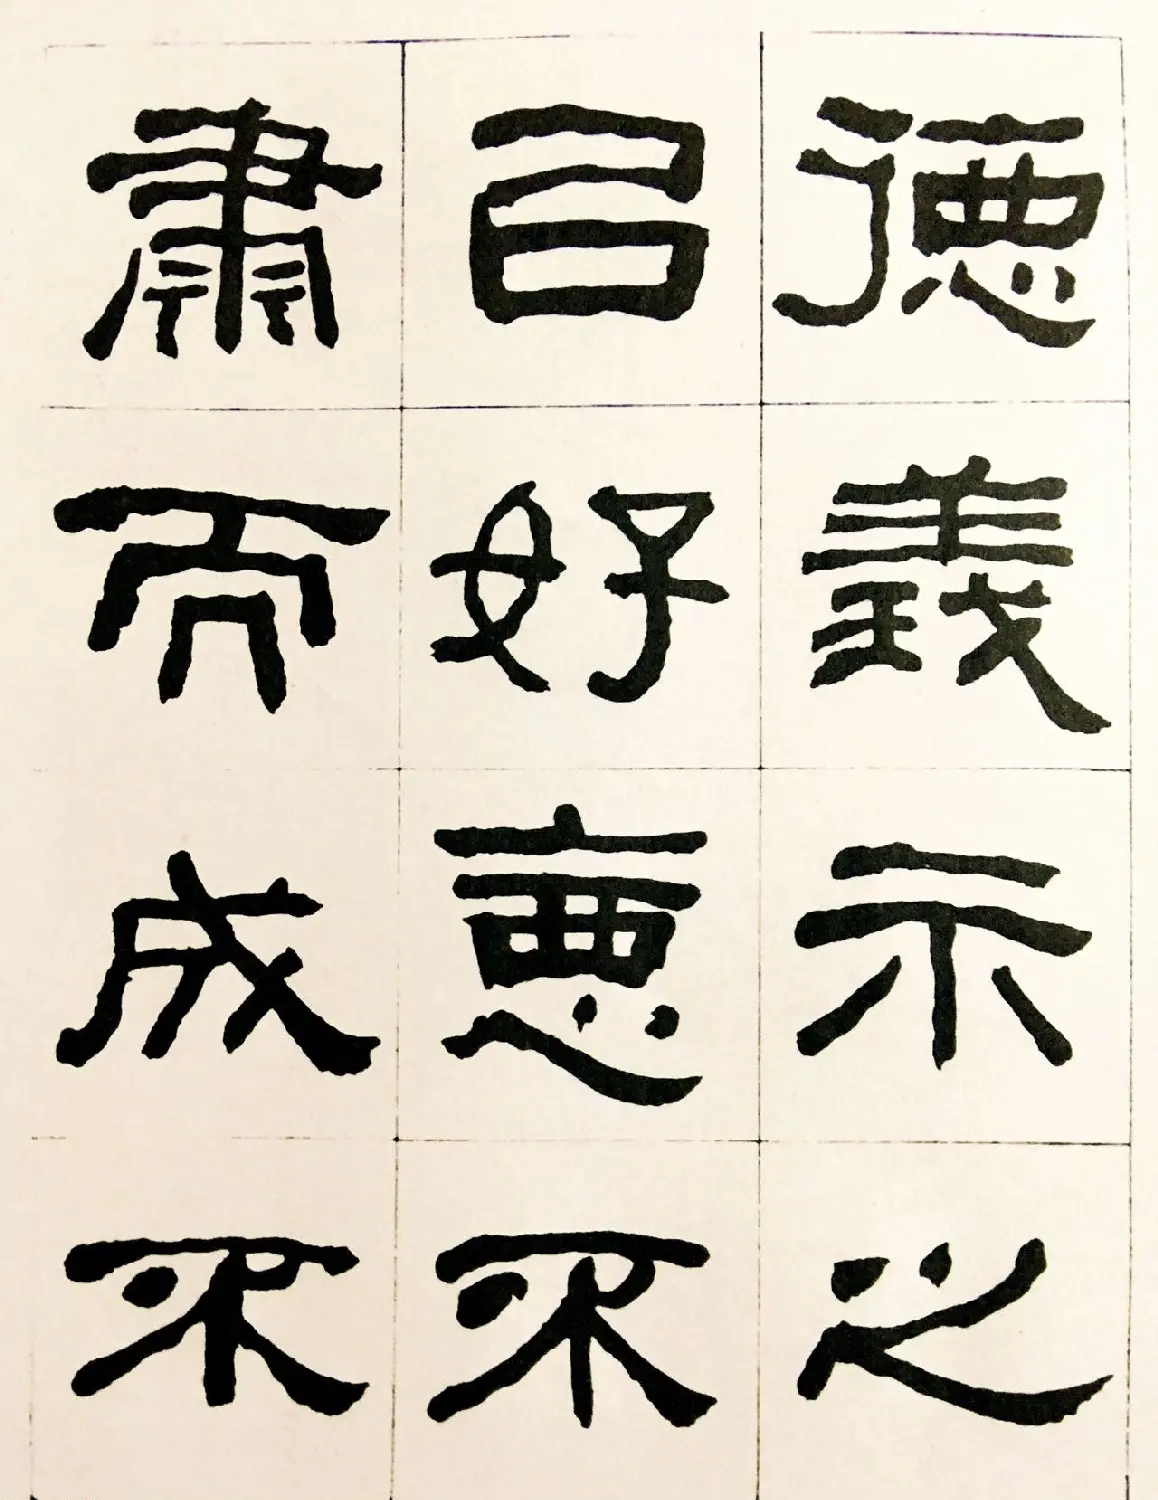 德義示之
以好惡不
肅而成不